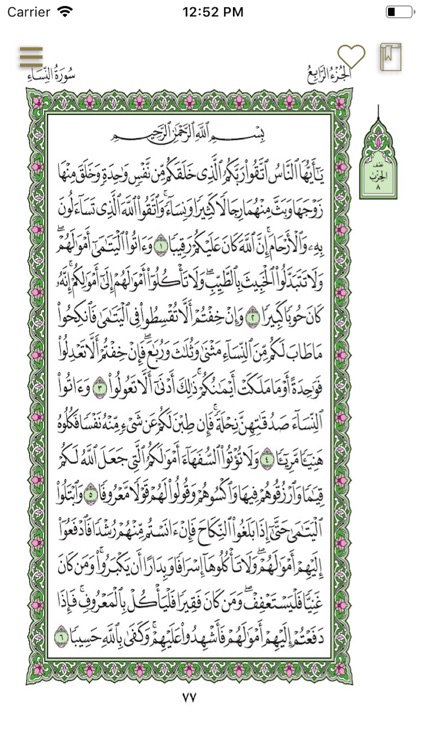 Carrier 12:52 PM
سُورَةُ النِّسَاءِ الجُزْءُ الرَّابِعُ
بِسْمِ اللَّهِ الرَّحْمَٰنِ الرَّحِيمِ
يَٰٓأَيُّهَا النَّاسُ اتَّقُوا۟ رَبَّكُمُ الَّذِى خَلَقَكُم مِّن نَّفْسٍ وَٰحِدَةٍ وَخَلَقَ مِنْهَا
زَوْجَهَا وَبَثَّ مِنْهُمَا رِجَالًا كَثِيرًا وَنِسَآءً ۚ وَاتَّقُوا۟ اللَّهَ الَّذِى تَسَآءَلُونَ
بِهِۦ وَالْأَرْحَامَ ۚ إِنَّ اللَّهَ كَانَ عَلَيْكُمْ رَقِيبًا ١ وَءَاتُوا۟ الْيَتَٰمَىٰٓ أَمْوَٰلَهُمْ ۖ
وَلَا تَتَبَدَّلُوا۟ الْخَبِيثَ بِالطَّيِّبِ ۖ وَلَا تَأْكُلُوٓا۟ أَمْوَٰلَهُمْ إِلَىٰٓ أَمْوَٰلِكُمْ ۚ إِنَّهُۥ
كَانَ حُوبًا كَبِيرًا ٢ وَإِنْ خِفْتُمْ أَلَّا تُقْسِطُوا۟ فِى الْيَتَٰمَىٰ فَانكِحُوا۟
مَا طَابَ لَكُم مِّنَ النِّسَآءِ مَثْنَىٰ وَثُلَٰثَ وَرُبَٰعَ ۖ فَإِنْ خِفْتُمْ أَلَّا تَعْدِلُوا۟
فَوَٰحِدَةً أَوْ مَا مَلَكَتْ أَيْمَٰنُكُمْ ۚ ذَٰلِكَ أَدْنَىٰٓ أَلَّا تَعُولُوا۟ ٣ وَءَاتُوا۟
النِّسَآءَ صَدُقَٰتِهِنَّ نِحْلَةً ۚ فَإِن طِبْنَ لَكُمْ عَن شَىْءٍ مِّنْهُ نَفْسًا فَكُلُوهُ
هَنِيٓـًٔا مَّرِيٓـًٔا ٤ وَلَا تُؤْتُوا۟ السُّفَهَآءَ أَمْوَٰلَكُمُ الَّتِى جَعَلَ اللَّهُ لَكُمْ
قِيَٰمًا وَارْزُقُوهُمْ فِيهَا وَاكْسُوهُمْ وَقُولُوا۟ لَهُمْ قَوْلًا مَّعْرُوفًا ٥ وَابْتَلُوا۟
الْيَتَٰمَىٰ حَتَّىٰٓ إِذَا بَلَغُوا۟ النِّكَاحَ فَإِنْ ءَانَسْتُم مِّنْهُمْ رُشْدًا فَادْفَعُوٓا۟
إِلَيْهِمْ أَمْوَٰلَهُمْ ۖ وَلَا تَأْكُلُوهَآ إِسْرَافًا وَبِدَارًا أَن يَكْبَرُوا۟ ۚ وَمَن كَانَ
غَنِيًّا فَلْيَسْتَعْفِفْ ۖ وَمَن كَانَ فَقِيرًا فَلْيَأْكُلْ بِالْمَعْرُوفِ ۚ فَإِذَا
دَفَعْتُمْ إِلَيْهِمْ أَمْوَٰلَهُمْ فَأَشْهِدُوا۟ عَلَيْهِمْ ۚ وَكَفَىٰ بِاللَّهِ حَسِيبًا ٦
نصف
الحزب
٨
٧٧